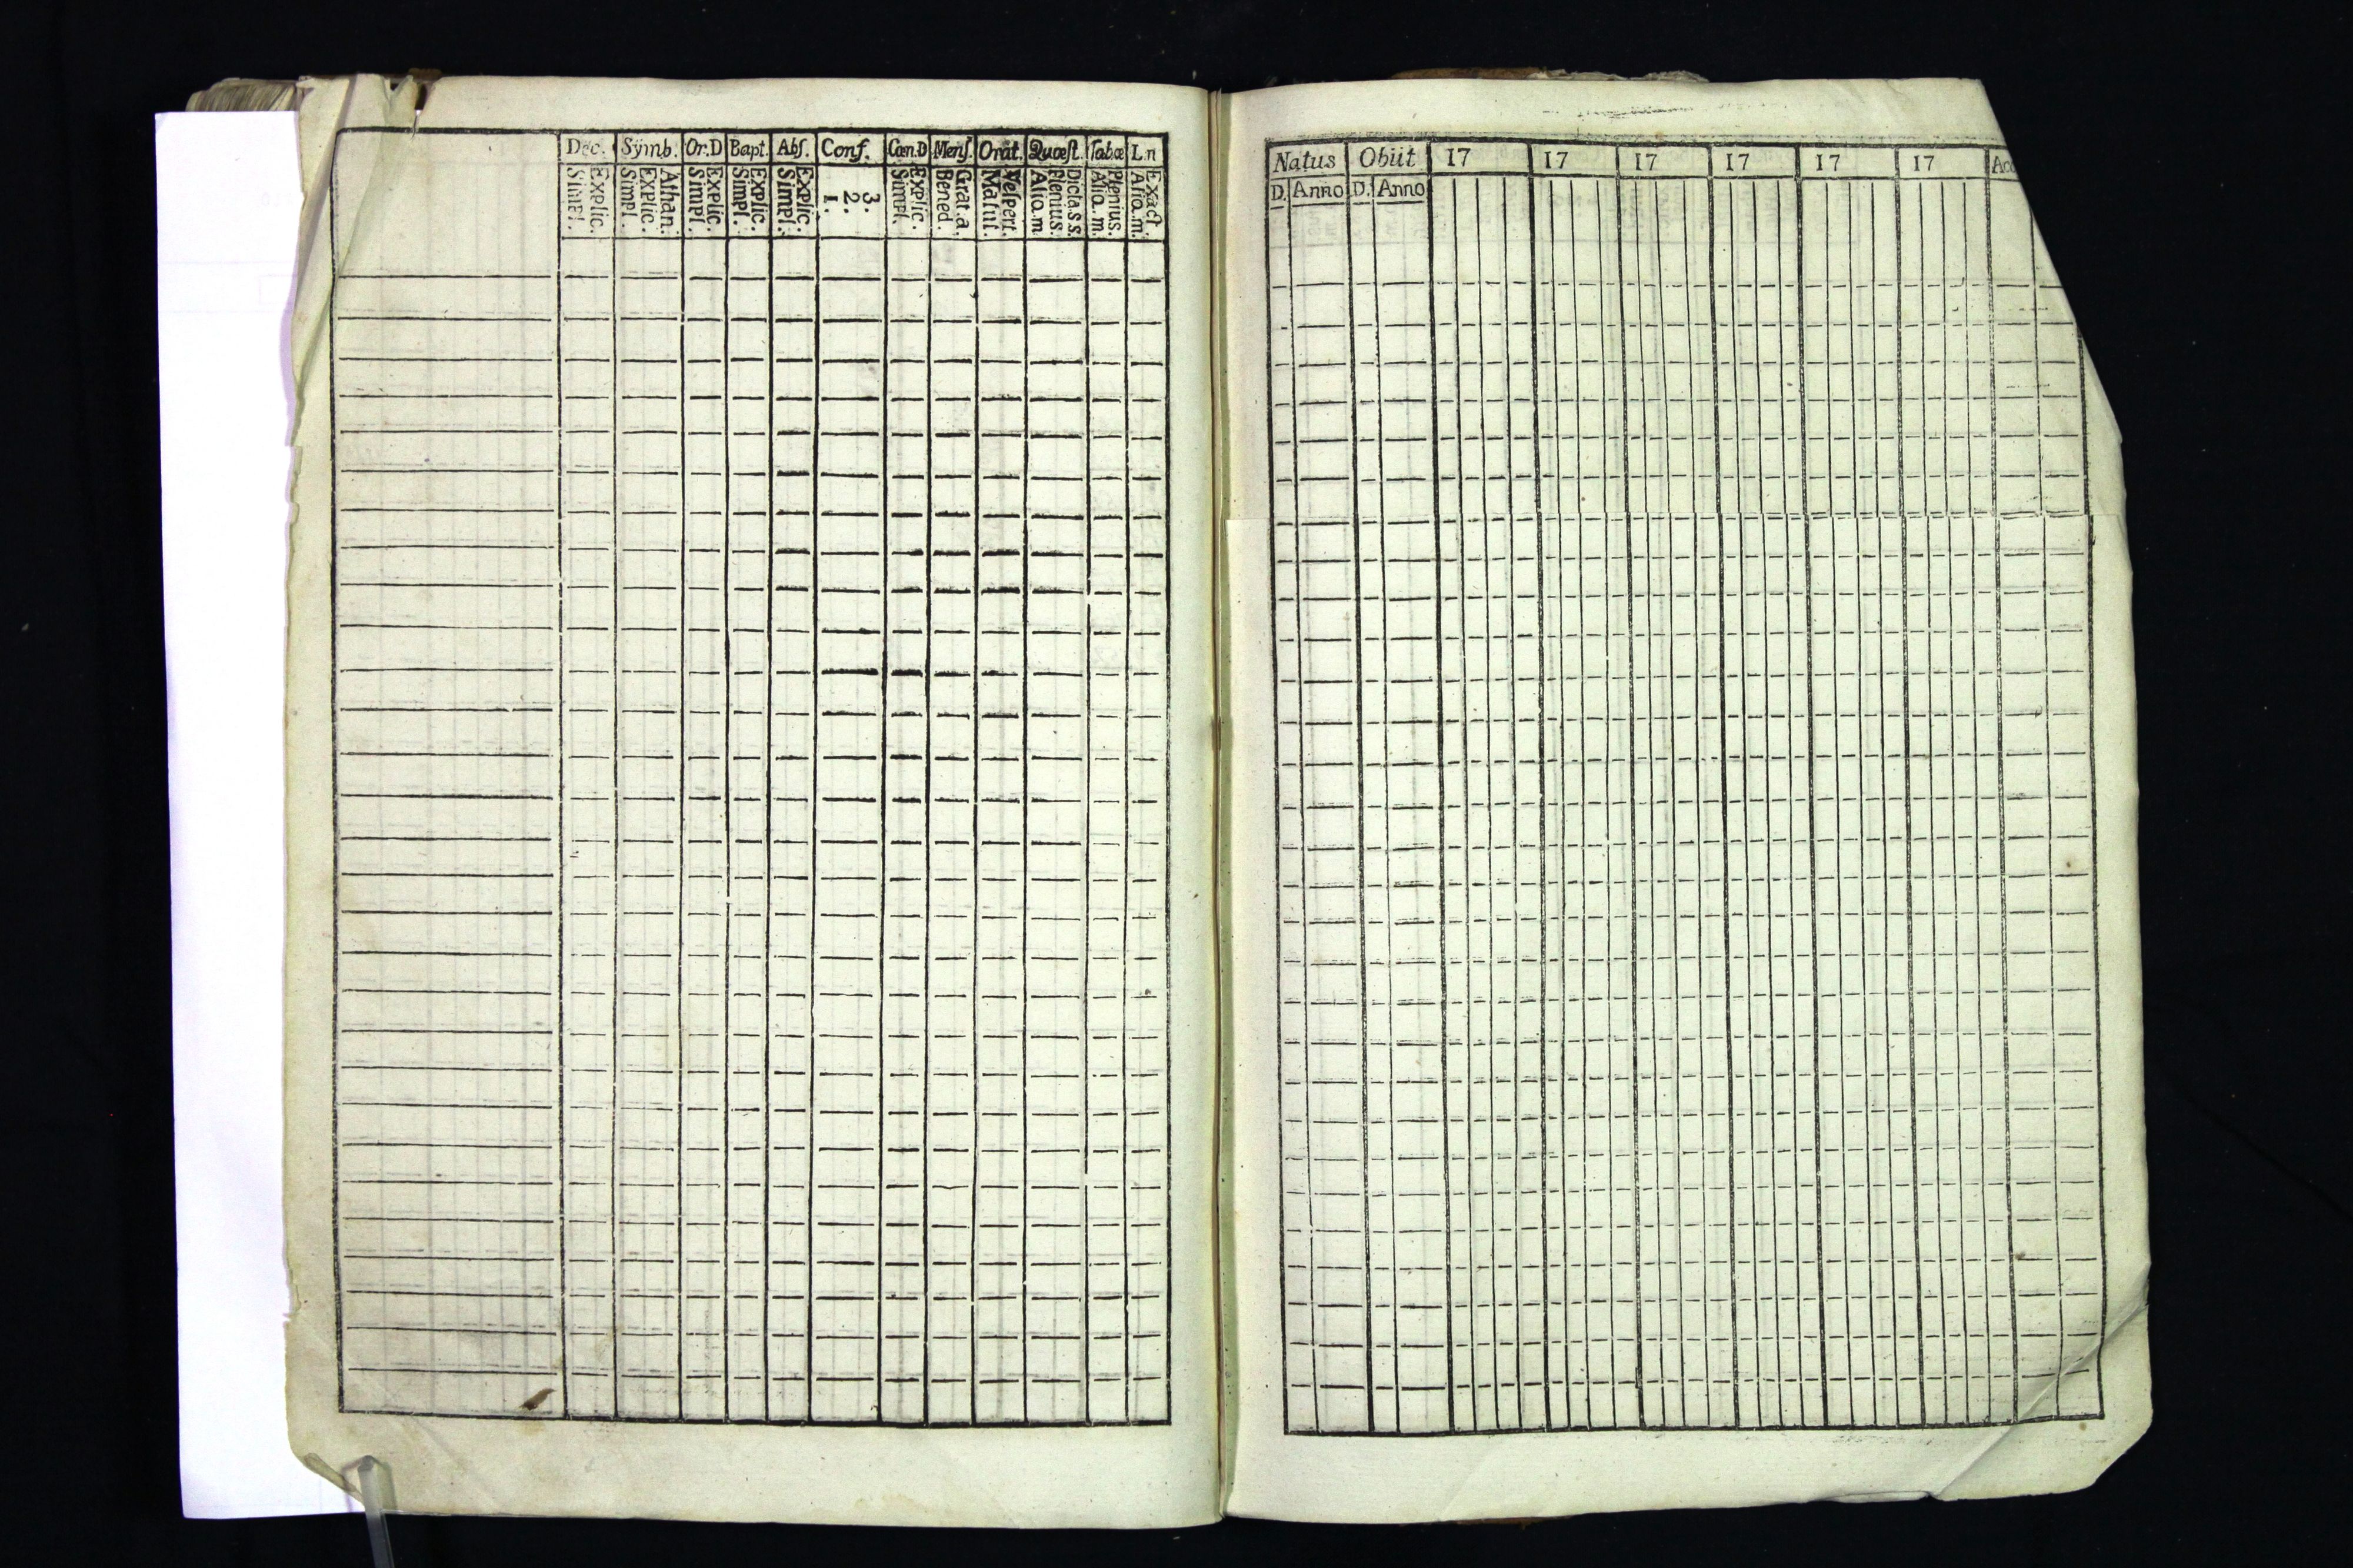 Dec. Sÿmb. Or.D Bapt. Abſ. Conf. Cœn.D Menſ. Orat. Quæſt. Tabæ L.n
Explic.
Simpl.
Athan.
Explic.
Simpl.
Explic.
Simpl.
Explic.
Simpl.
Explic.
Simpl.
3.
2.
1.
Explic.
Simpl.
Grat.a.
Bened.
Veſpert.
Matut.
Dicta.s.s.
Plenius.
Aliq.m.
Plenius.
Aliq.m.
Exact.
Aliq.m.
Natus Obiit 17 17 17 17 17 17
D. Anno D. Anno